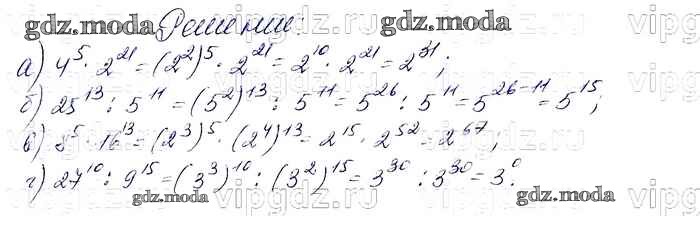 gdz.moda Решение: gdz.moda
а) 4⁵ · 2²¹ = (2²)⁵ · 2²¹ = 2¹⁰ · 2²¹ = 2³¹;
б) 25¹³ : 5¹¹ = (5²)¹³ : 5¹¹ = 5²⁶ : 5¹¹ = 5²⁶⁻¹¹ = 5¹⁵;
в) 8⁵ · 16¹³ = (2³)⁵ · (2⁴)¹³ = 2¹⁵ · 2⁵² = 2⁶⁷;
г) 27¹⁰ : 9¹⁵ = (3³)¹⁰ : (3²)¹⁵ = 3³⁰ : 3³⁰ = 3⁰.
gdz.moda gdz.moda
vipgdz.ru